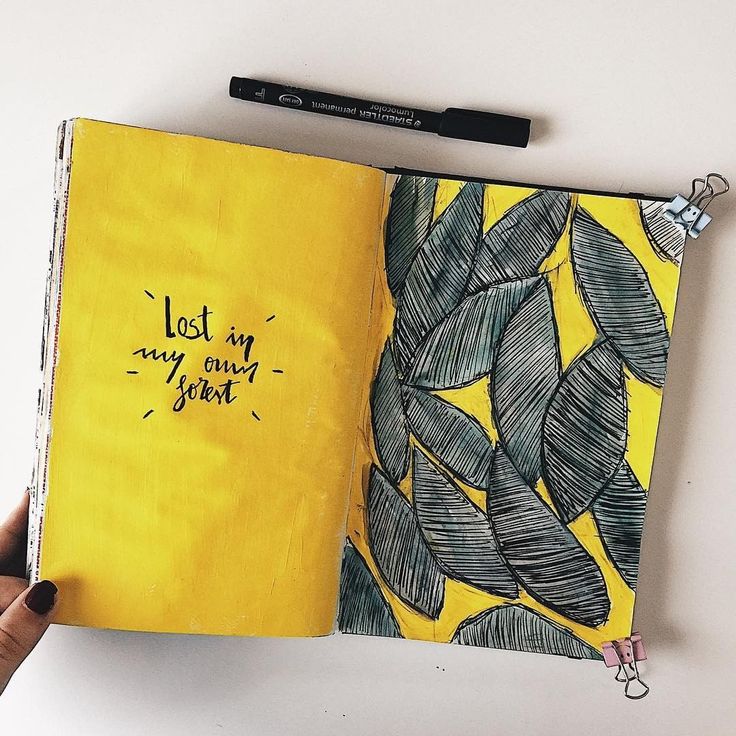 STAEDTLER permanent
Lumocolor
Lost in
my own
forest